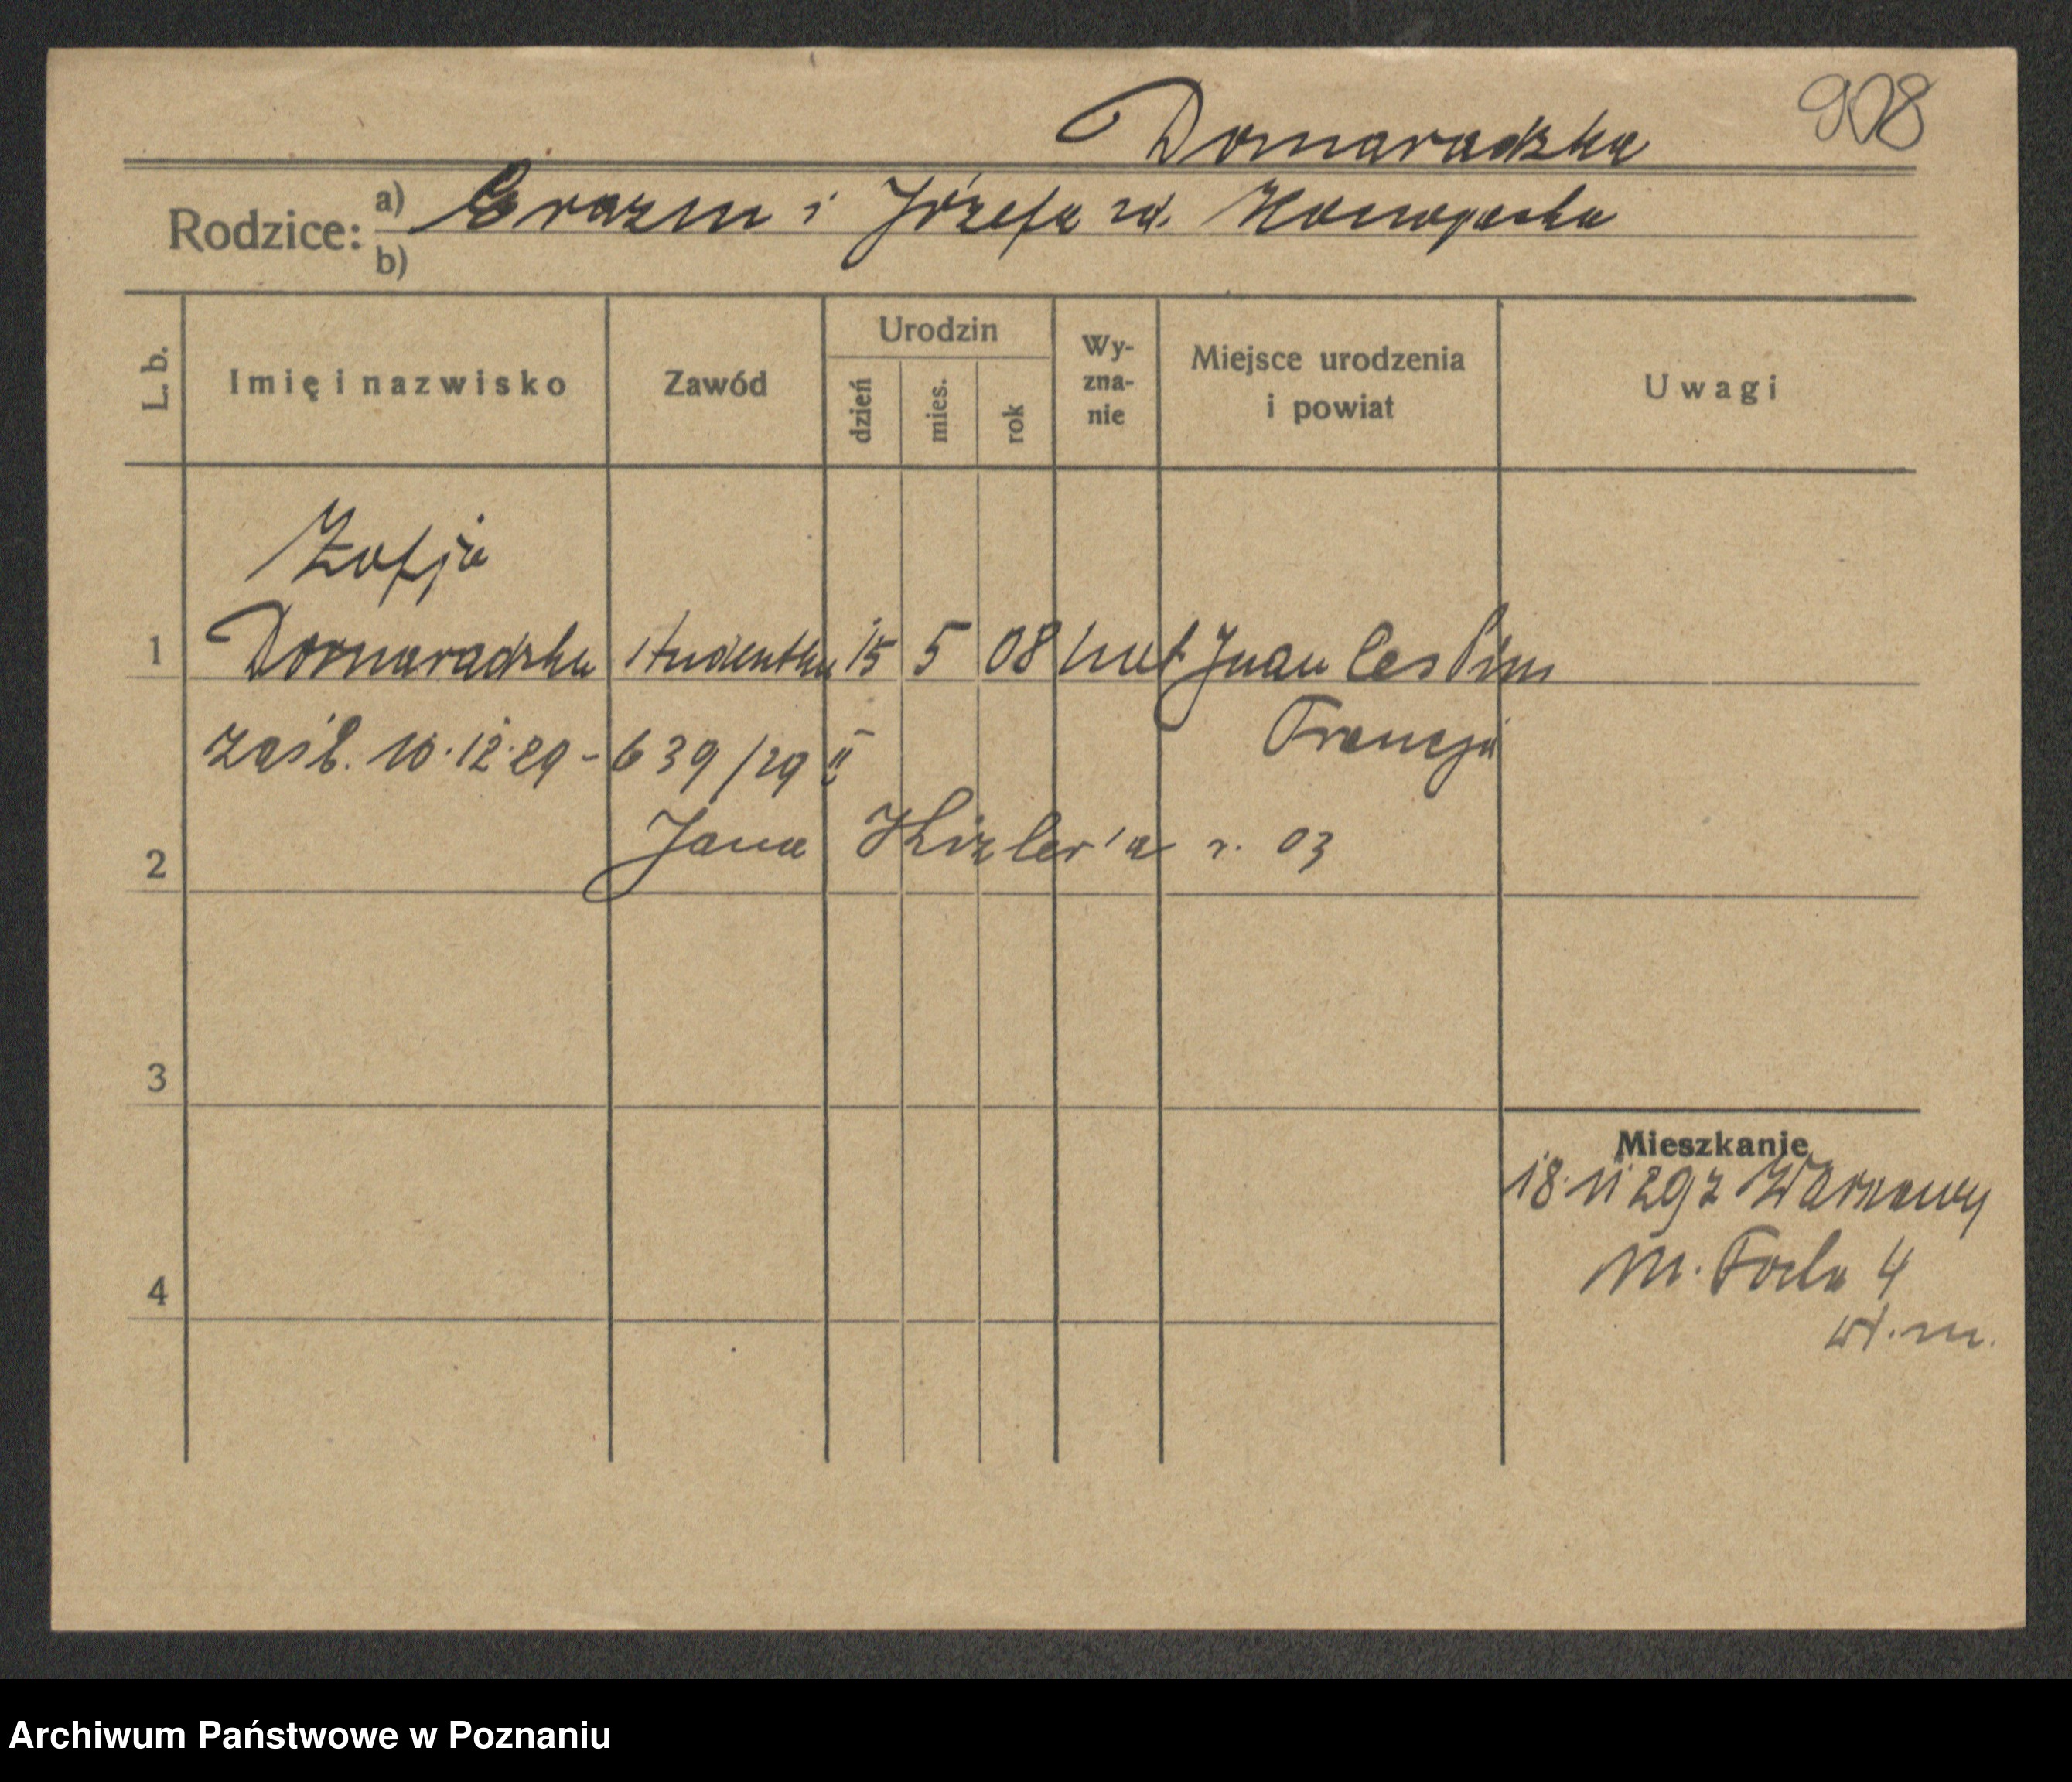 908
Domaradzka
Rodzice: a) Erazm i Józefa zd. Konopacka
b)
L. b.
Imię i nazwisko
Zawód
Urodzin
dzień
mies.
rok
Wy-
zna-
nie
Miejsce urodzenia
i powiat
Uwagi
Zofja
1 Domaradzka studentka 15 5 08 Juan les Pins
zaśl. 10.12.29 - 639/29 II Francja
Jana r. 03
2
3
Mieszkanie
18.11 29 z Warszawy
M. Focha 4
4
Archiwum Państwowe w Poznaniu